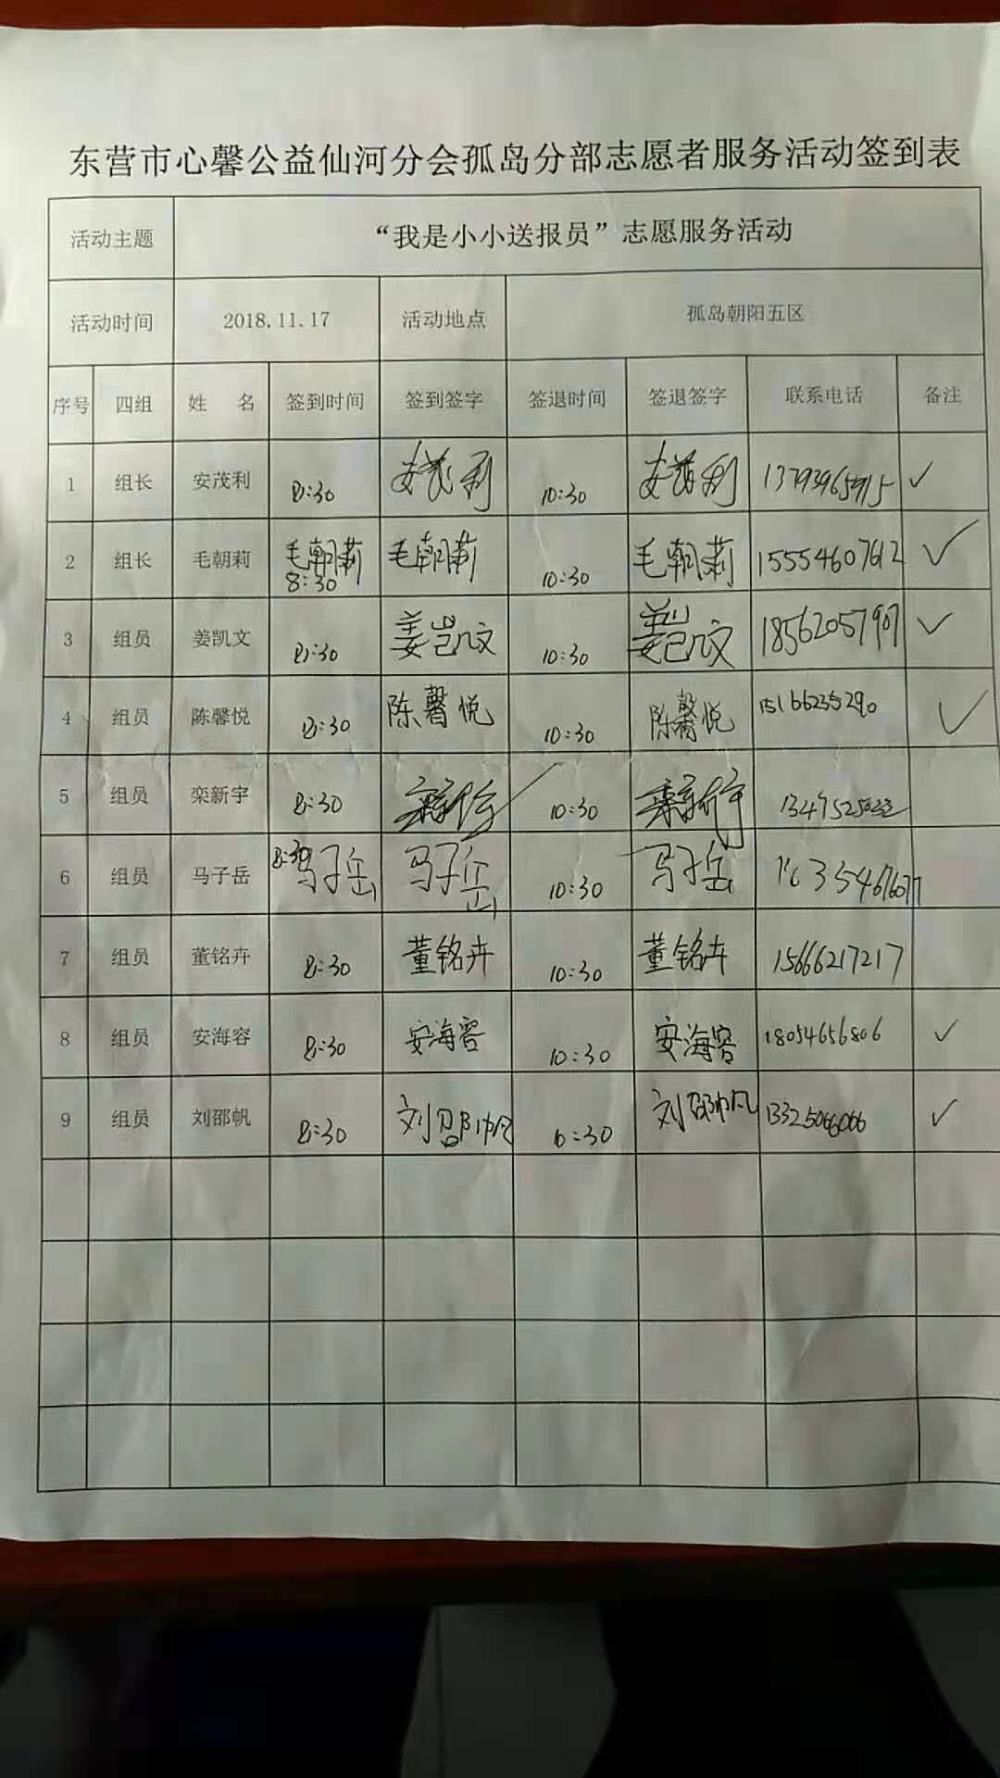 东营市心馨公益仙河分会孤岛分部志愿者服务活动签到表
活动主题 “我是小小送报员”志愿服务活动
活动时间 2018.11.17 活动地点 孤岛朝阳五区
序号 四组 姓 名 签到时间 签到签字 签退时间 签退签字 联系电话 备注
1 组长 安茂利 8:30 安茂利 10:30 安茂利 ✓
2 组长 毛朝莉 毛朝莉 8:30 毛朝莉 10:30 毛朝莉 15554607612 ✓
3 组员 姜凯文 8:30 姜岂几文 10:30 姜岂几文 18562057907 ✓
4 组员 陈馨悦 8:30 陈馨悦 10:30 陈馨悦 15166235290 ✓
5 组员 栾新宇 8:30 10:30
6 组员 马子岳 8:30 马子岳 马子岳 10:30 马子岳
7 组员 董铭卉 8:30 董铭卉 10:30 董铭卉 15666217217
8 组员 安海容 8:30 安海容 10:30 安海容 18054656806 ✓
9 组员 刘邵帆 8:30 刘邵帆 10:30 刘邵帆 ✓